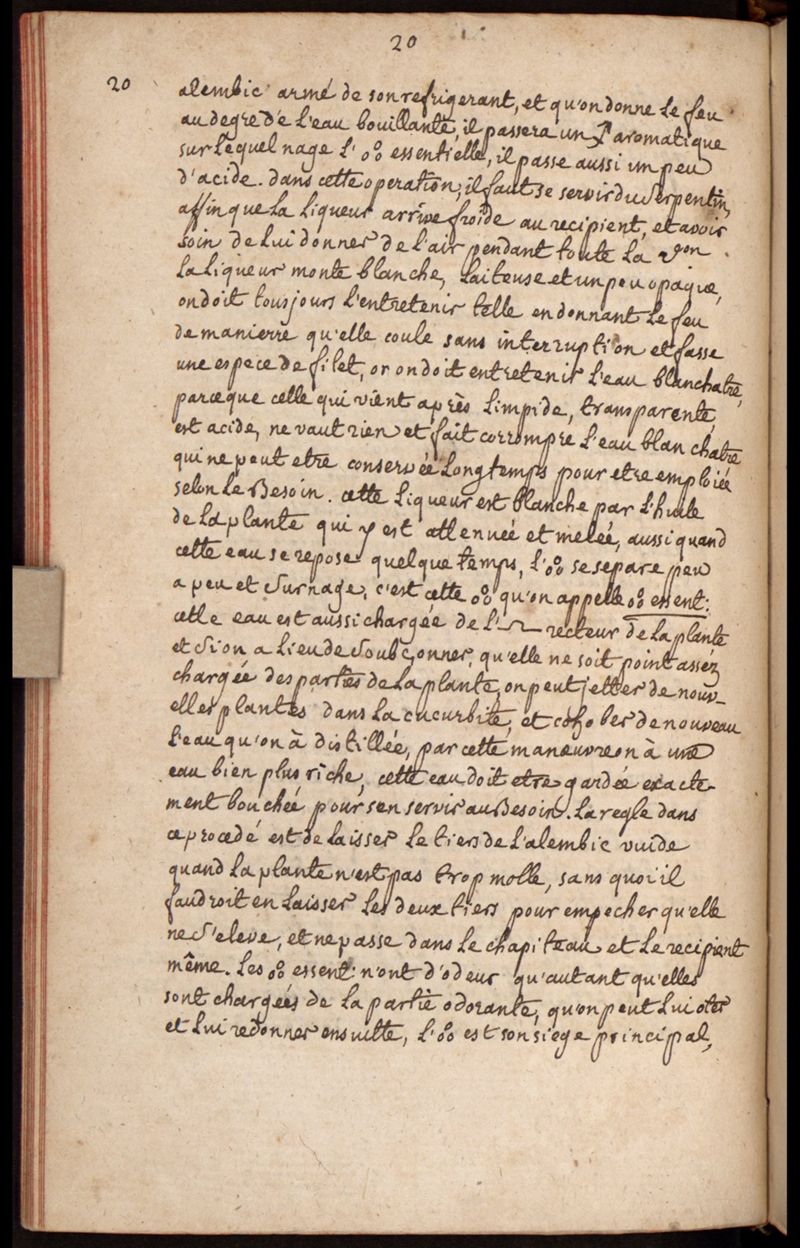 20
20
alembic armé de son refrigerant, et qu'on donne le feu
au degre de l'eau bouillante, il passera un aromatique
sur lequel nage l' o°o essentielle, il passe aussi un peu
d'acide. dans cette operation, il faut se servir du serpentin,
affin que la liqueur arrive froide au recipient, et avoir
soin de lui donner de l'air pendant toute la
la liqueur monte blanche, laiteuse et un peu opaque,
on doit tousjours l'entretenir telle en donnant le feu
de manierre qu'elle coule sans interruption et fasse
une espece de filet, or on doit entretenir l'eau blanchatre,
parceque celle qui vient après limpide, transparente,
est acide, ne vaut rien et fait corrompre l'eau blanchatre
qui ne peut etre conservée longtemps pour etre emploiée
selon le Besoin. cette liqueur est blanche par l'huile
de la plante qui y est attenuée et melée, aussi quand
cette eau se repose quelque temps, l'o°o se separe peu
a peu et surnage, c'est cette o°o qu'on appelle o°o essent:
cette eau est aussi chargée de l' recteur de la plante
et si on a lieu de soubçonner, qu'elle ne soit point assez
chargée des parties de la plante, on peut jetter de nouv-
elles plantes dans la cucurbite, et cohober de nouveau
l'eau qu'on à distillée, par cette manœuvre on à une
eau bien plus riche, cette eau doit etre gardée exacte-
ment bouchée pour s'en servir au Besoin. la regle dans
ce procedé est de laisser le tiers de l'alembic vuide
quand la plante n'est pas trop molle, sans quoi il
faudroit en laisser les deux tiers pour empecher qu'elle
ne s'eleve, et ne passe dans le chapiteau et le recipient
même. les o°o essent: n'ont d'odeur qu'autant qu'elles
sont chargées de la partie odorante, qu'on peut lui oter
et lui redonner ensuitte, l'o°o est son siege principal,